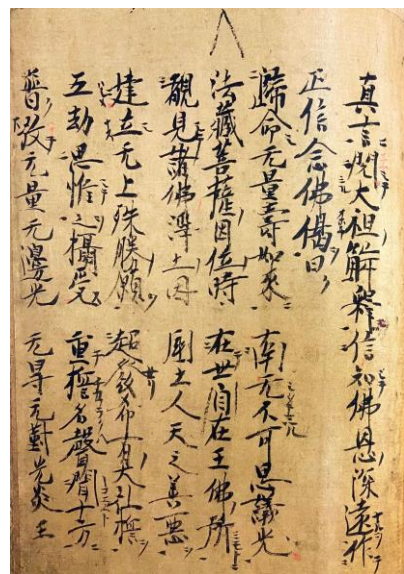 真言閲大祖解釋信知佛恩深遠作
正信念佛偈曰
歸命无量壽如来　南无不可思議光
法藏菩薩因位時　在世自在王佛所
覩見諸佛淨土因　國土人天之善惡
建立无上殊勝願　超發希有大弘誓
五劫思惟之攝受　重誓名聲聞十方
普放无量无邊光　无㝵无對光炎王